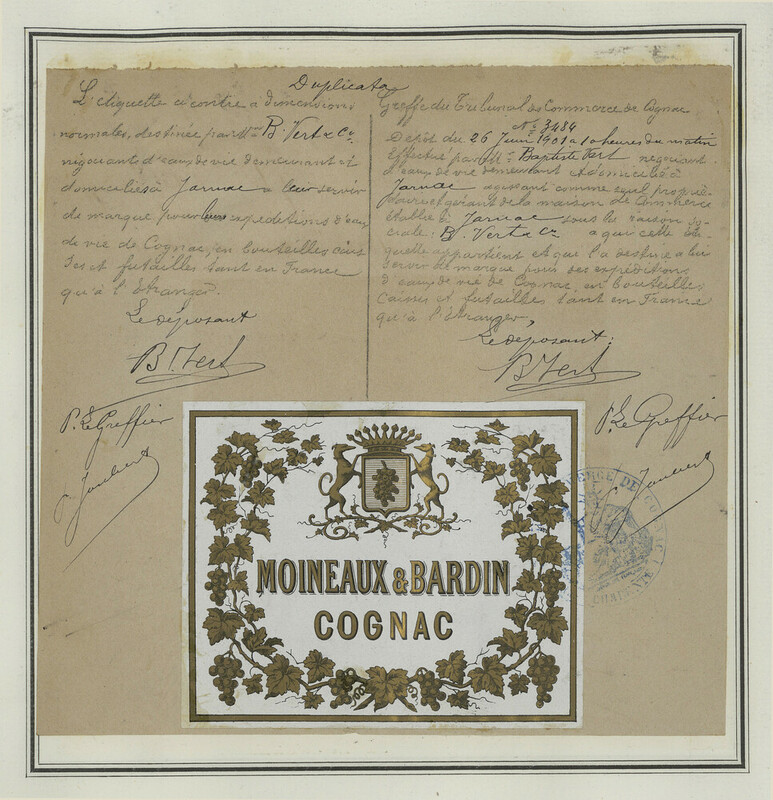 Duplicata
L'étiquette ci contre à dimensions
normales, destinée par Mrs B. Vert & Cie
négociants d'eaux de vie demeurant et
domiciliés à Jarnac à leur servir
de marque pour leurs expéditions d'eaux
de vie de Cognac, en bouteilles cais
ses et futailles tant en France
qu'à l'étranger.
Le déposant
B. Vert
P. Le Greffier
Greffe du Tribunal de Commerce de Cognac
No 3484
Dépôt du 26 Juin 1901 à 10 heures du matin
Effectué par Mr Baptiste Vert négociant
d'eaux de vie demeurant & domicilié à
Jarnac agissant comme seul proprié-
taire et gérant de la maison de Commerce
établie à Jarnac sous la raison so-
ciale: B. Vert & Cie a qui cette éti-
quette appartient et que l'a destinée à lui
servir de marque pour ses expéditions
d'eaux de vie de Cognac, en bouteilles
caisses et futailles tant en France
qu'à l'étranger.
Le déposant:
B. Vert
P. Le Greffier
MOINEAUX & BARDIN
COGNAC
DE COGNAC
CHARENTE